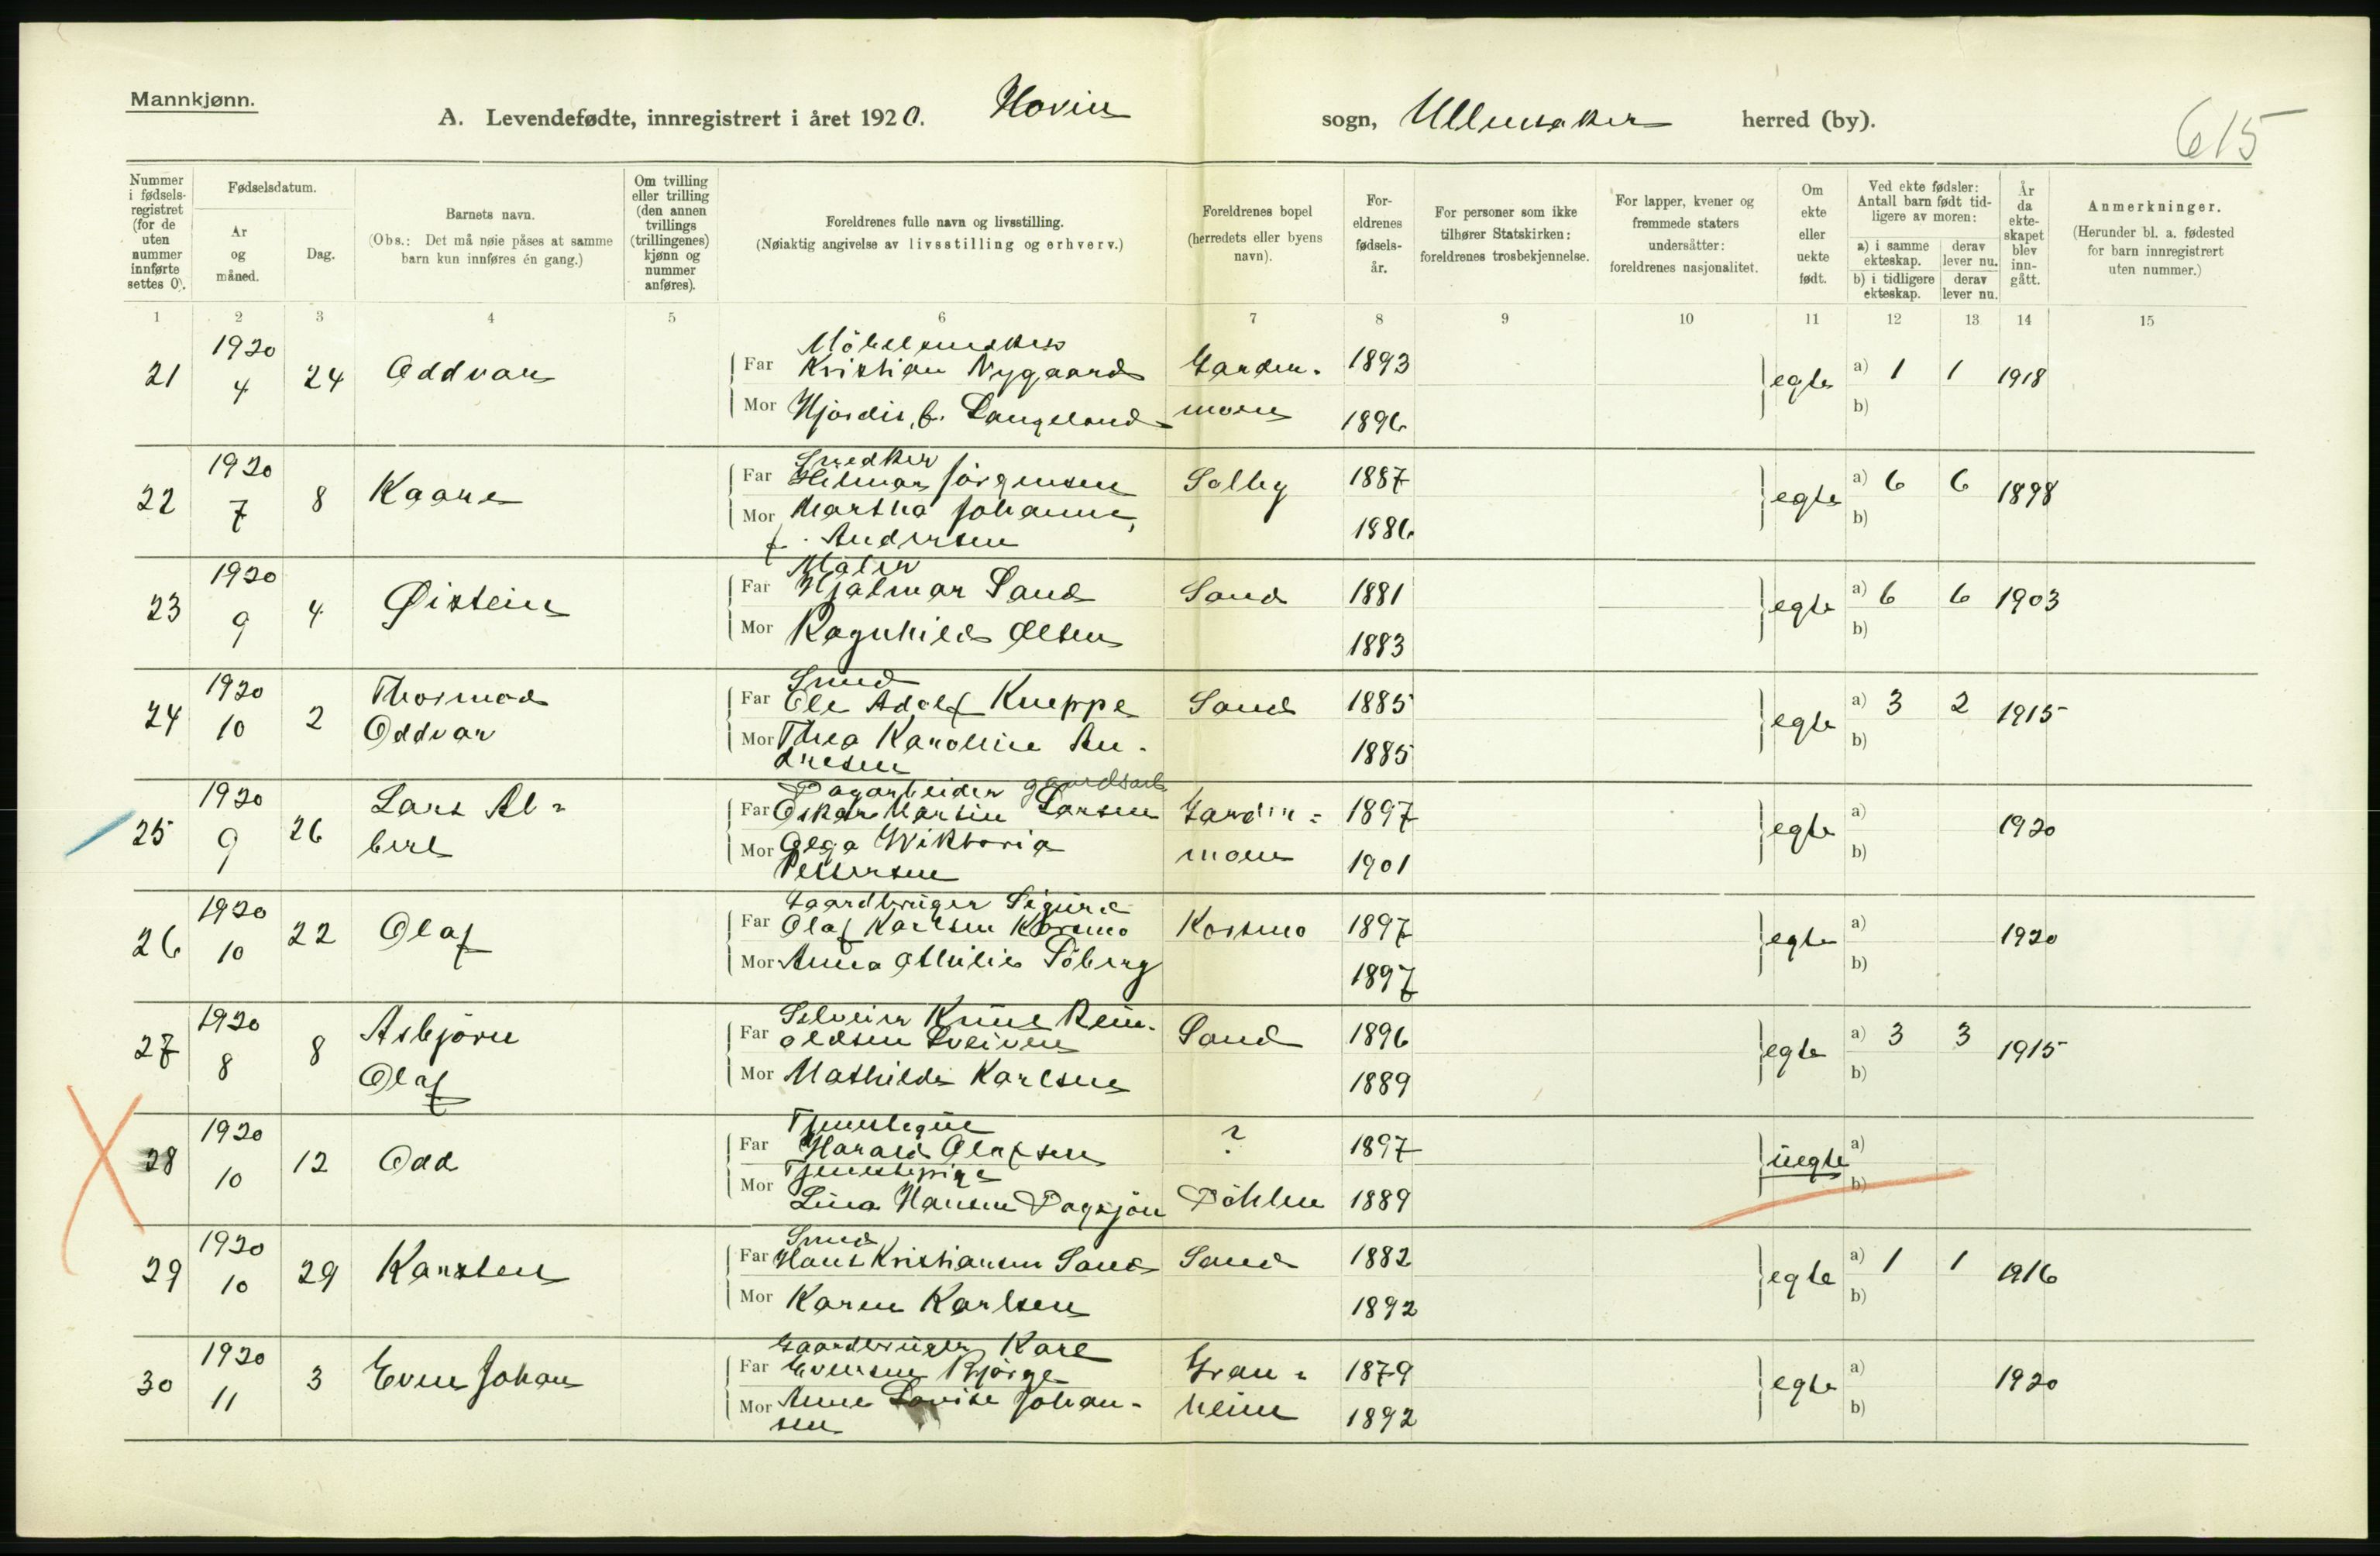 Mannkjønn.
A. Levendefødte, innregistrert i året 1920. Hovin sogn, Ullensaker herred (by).
615
Nummer i fødselsregistret (for de uten nummer innførte settes 0).
Fødselsdatum.
År og måned.
Dag.
Barnets navn.
(Obs.: Det må nøie påses at samme barn kun innføres én gang.)
Om tvilling eller trilling (den annen tvillings (trillingenes) kjønn og nummer anføres).
Foreldrenes fulle navn og livsstilling.
(Nøiaktig angivelse av livsstilling og erhverv.)
Foreldrenes bopel (herredets eller byens navn).
Foreldrenes fødselsår.
For personer som ikke tilhører Statskirken: foreldrenes trosbekjennelse.
For lapper, kvener og fremmede staters undersåtter: foreldrenes nasjonalitet.
Om ekte eller uekte født.
Ved ekte fødsler: Antall barn født tidligere av moren:
a) i samme ekteskap. derav lever nu.
b) i tidligere ekteskap. derav lever nu.
År da ekteskapet blev inngått.
Anmerkninger.
(Herunder bl. a. fødested for barn innregistrert uten nummer.)
1 2 3 4 5 6 7 8 9 10 11 12 13 14 15
21 1920 4 24 Oddvar
Möbelsnedker
Far Kristian Nygaard Garder- 1893 egte a) 1 1 1918
Mor Hjördis, f. Langeland moen 1896 b)
22 1920 7 8 Kaare
Snedker
Far Hilmar Jörgensen Solby 1887 egte a) 6 6 1898
Mor Martha Johanne, 1886 b)
f. Andersen
23 1920 9 4 Øistein
Maler
Far Hjalmar Sand Sand 1881 egte a) 6 6 1903
Mor Ragnhild Olsen 1883 b)
24 1920 10 2 Thormod Oddvar
Smed
Far Ole Adolf Kneppe Sand 1885 egte a) 3 2 1915
Mor Thea Karoline An- 1885 b)
dresen
25 1920 9 26 Lars Al-bert
Dagarbeider gaardsarb.
Far Oskar Martin Larsen Garder- 1897 egte a) 1920
Mor Olga Wiktoria moen 1901 b)
Pettersen
26 1920 10 22 Olaf
Gaardbruger Sigurd
Far Olaf Karlsen Korsmo Korsmo 1897 egte a) 1920
Mor Anna Othilie Söberg 1897 b)
27 1920 8 8 Asbjörn Olaf
Selveier Knut Rein-
Far oldsen Sveiven Sand 1896 egte a) 3 3 1915
Mor Mathilde Karlsen 1889 b)
28 1920 10 12 Odd
Tjenestegut
Far Harald Olafsen ? 1897 uegte a)
Tjenestepige
Mor Lina Hansen Dagsjön Döhlen 1889 b)
29 1920 10 29 Karsten
Smed
Far Hans Kristiansen Sand Sand 1882 egte a) 1 1 1916
Mor Karen Karlsen 1892 b)
30 1920 11 3 Even Johan
Gaardbruger Karl
Far Evensen Bjørge Gran- 1879 egte a) 1920
Mor Anne Lovise Johan- heim 1892 b)
sen